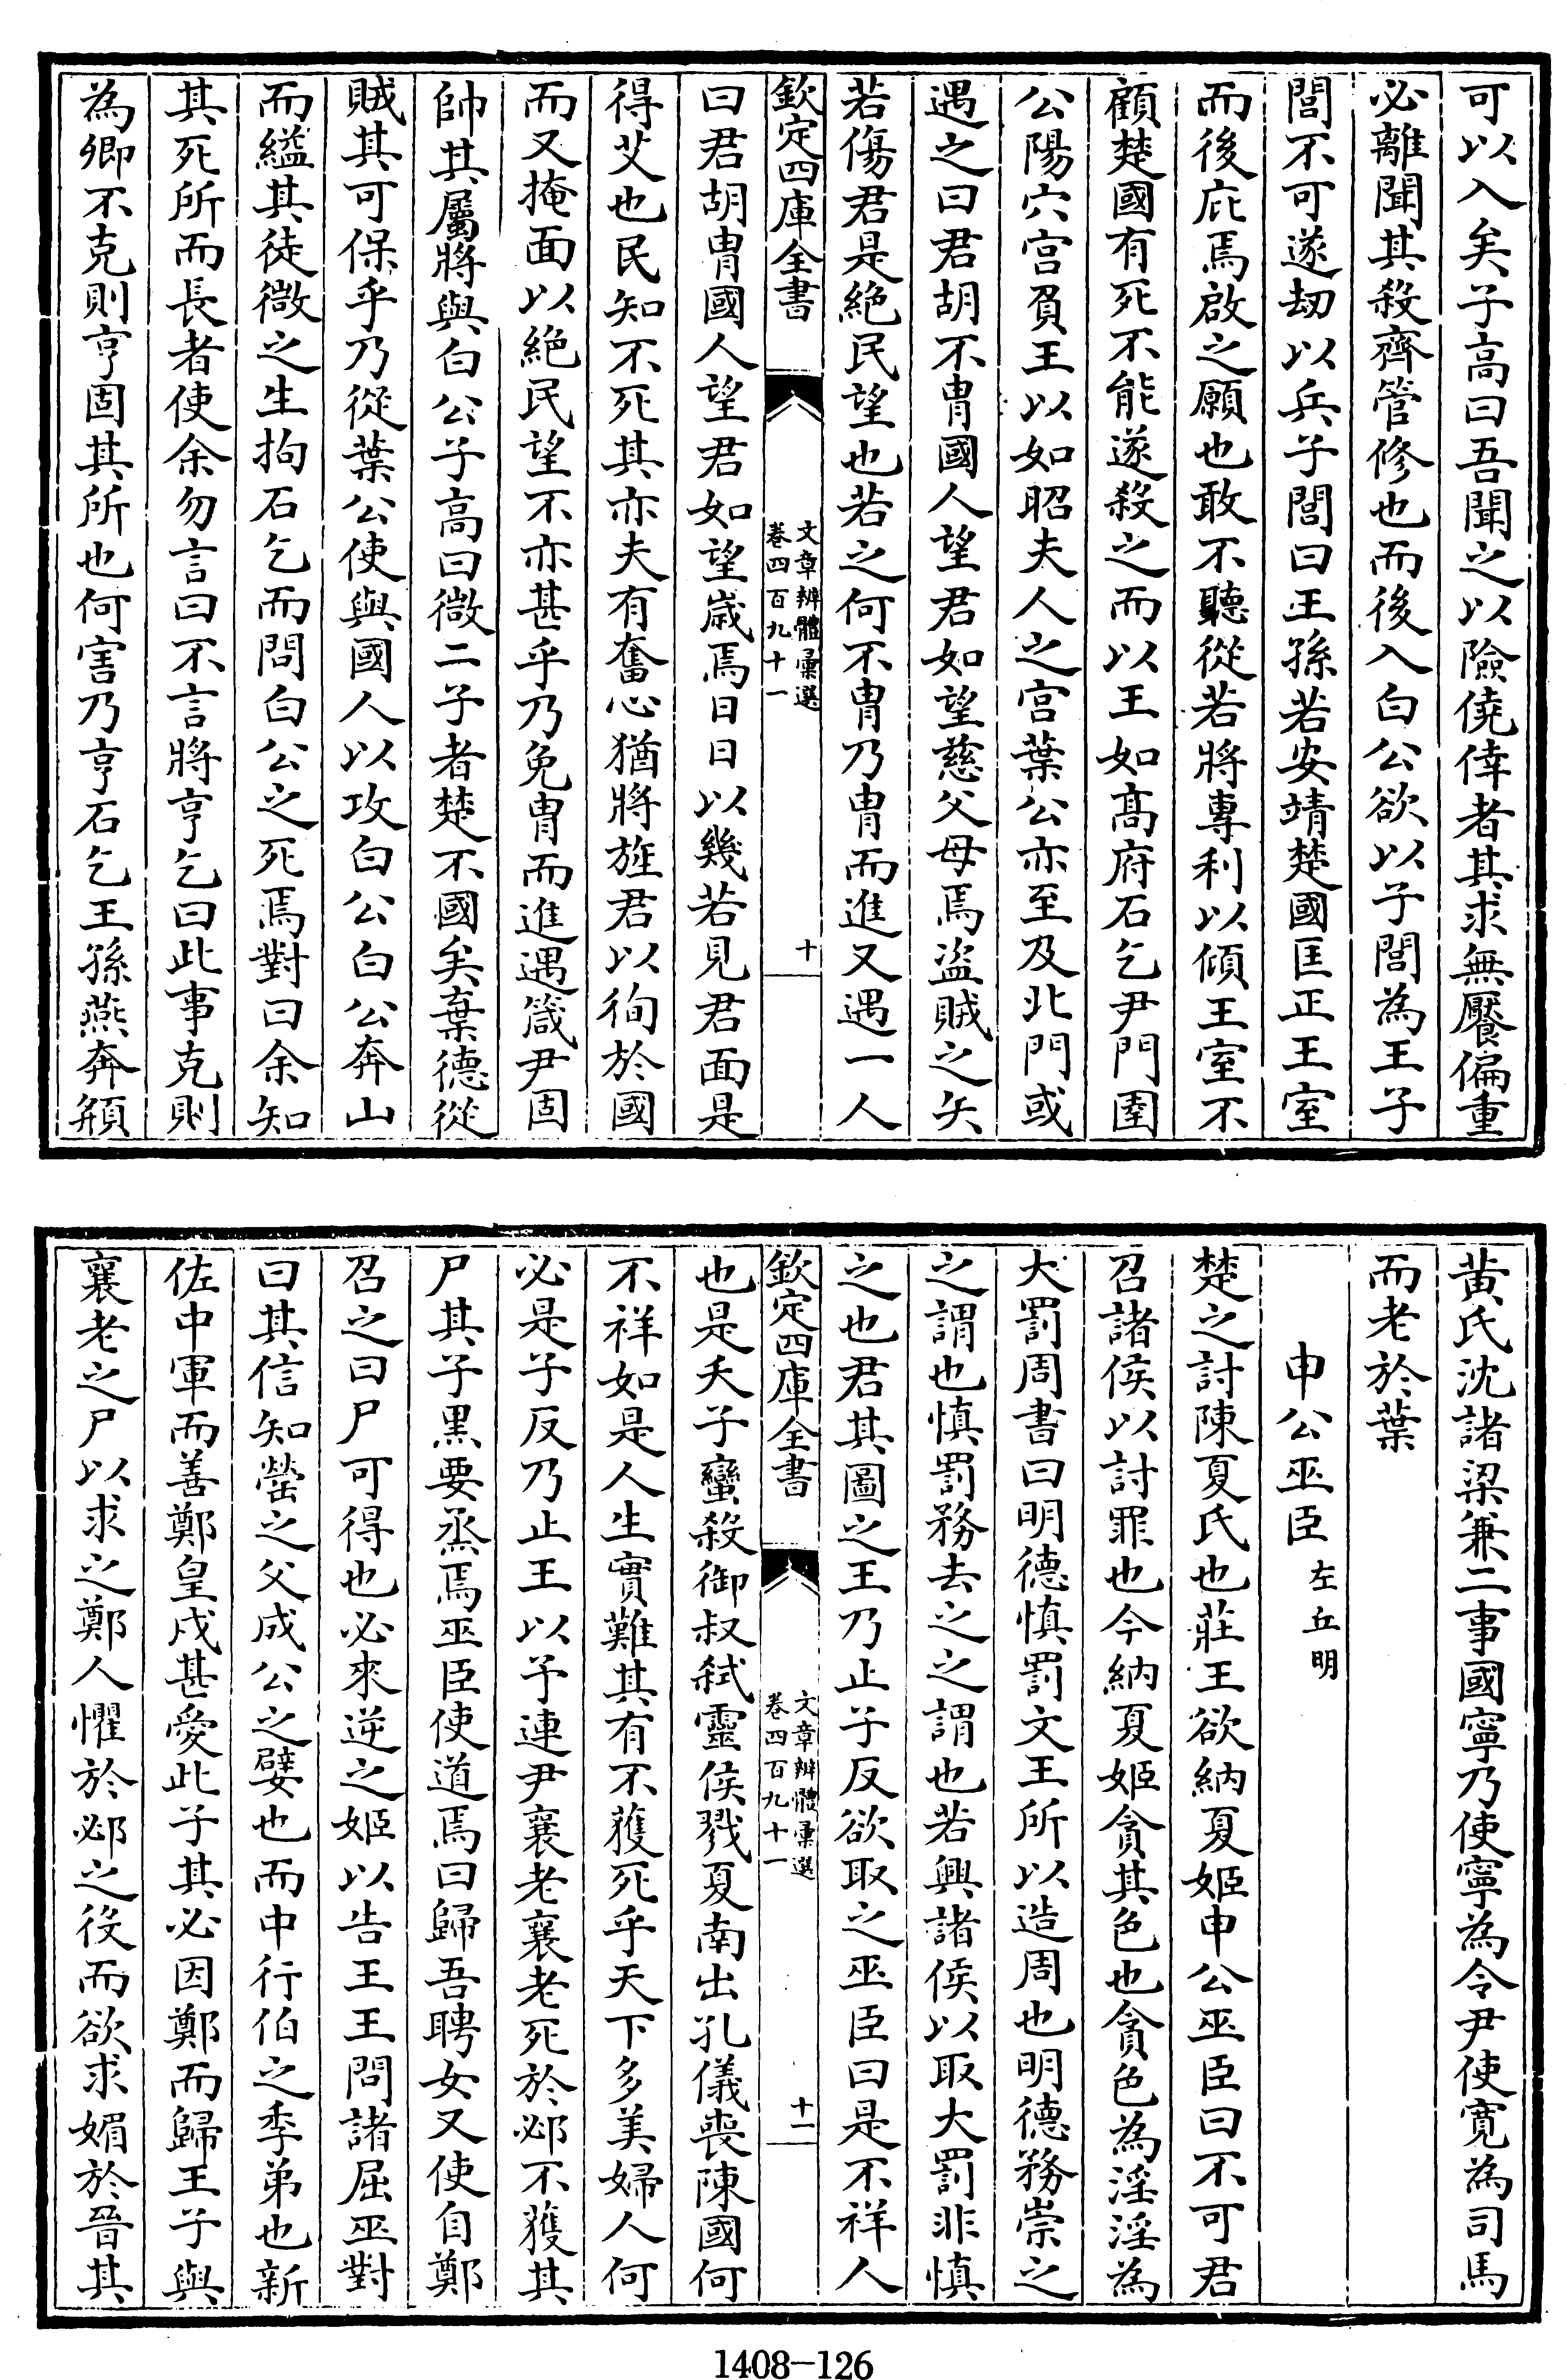 可以入矣子高曰吾聞之以險僥倖者其求無饜偏重
必離聞其殺齊管修也而後入白公欲以子閭為王子
閭不可遂劫以兵子閭曰王孫若安靖楚國匡正王室
而後庇焉啟之願也敢不聽從若將專利以傾王室不
顧楚國有死不能遂殺之而以王如髙府石乞尹門圉
公陽穴宫負王以如昭夫人之宫葉公亦至及北門或
遇之曰君胡不胄國人望君如望慈父母焉盜賊之矢
若傷君是絶民望也若之何不胄乃胄而進又遇一人
欽定四庫全書
文章辨體彙選
卷四百九十一
十
曰君胡胄國人望君如望歲焉日日以幾若見君面是
得艾也民知不死其亦夫有奮心猶將旌君以徇於國
而又掩面以絶民望不亦甚乎乃免胄而進遇箴尹固
帥其屬將與白公子高曰微二子者楚不國矣棄德從
賊其可保乎乃從葉公使與國人以攻白公白公奔山
而縊其徒微之生拘石乞而問白公之死焉對曰余知
其死所而長者使余勿言曰不言將亨乞曰此事克則
為卿不克則亨固其所也何害乃亨石乞王孫燕奔頯
黄氏沈諸梁兼二事國寧乃使寧為令尹使寛為司馬
而老於葉
申公巫臣左丘明
楚之討陳夏氏也莊王欲納夏姬申公巫臣曰不可君
召諸侯以討罪也今納夏姬貪其色也貪色為淫淫為
大罰周書曰明德慎罰文王所以造周也明德務崇之
之謂也慎罰務去之之謂也若興諸侯以取大罰非慎
之也君其圖之王乃止子反欲取之巫臣曰是不祥人
欽定四庫全書
文章辨體彙選
卷四百九十一
十一
也是夭子蠻殺御叔弑靈侯戮夏南出孔儀喪陳國何
不祥如是人生實難其有不獲死乎天下多美婦人何
必是子反乃止王以予連尹襄老襄老死於邲不獲其
尸其子黒要烝焉巫臣使道焉曰歸吾聘女又使自鄭
召之曰尸可得也必來逆之姬以告王王問諸屈巫對
曰其信知罃之父成公之嬖也而中行伯之季弟也新
佐中軍而善鄭皇戍甚愛此子其必因鄭而歸王子與
襄老之尸以求之鄭人懼於邲之役而欲求媚於晉其
1408—126